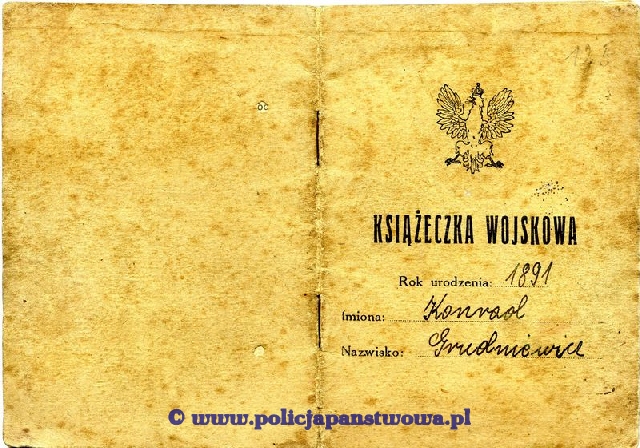 KSIĄŻECZKA WOJSKOWA
Rok urodzenia: 1891
Imiona: Konrad
Nazwisko: Grudniewicz
© www.policjapanstwowa.pl